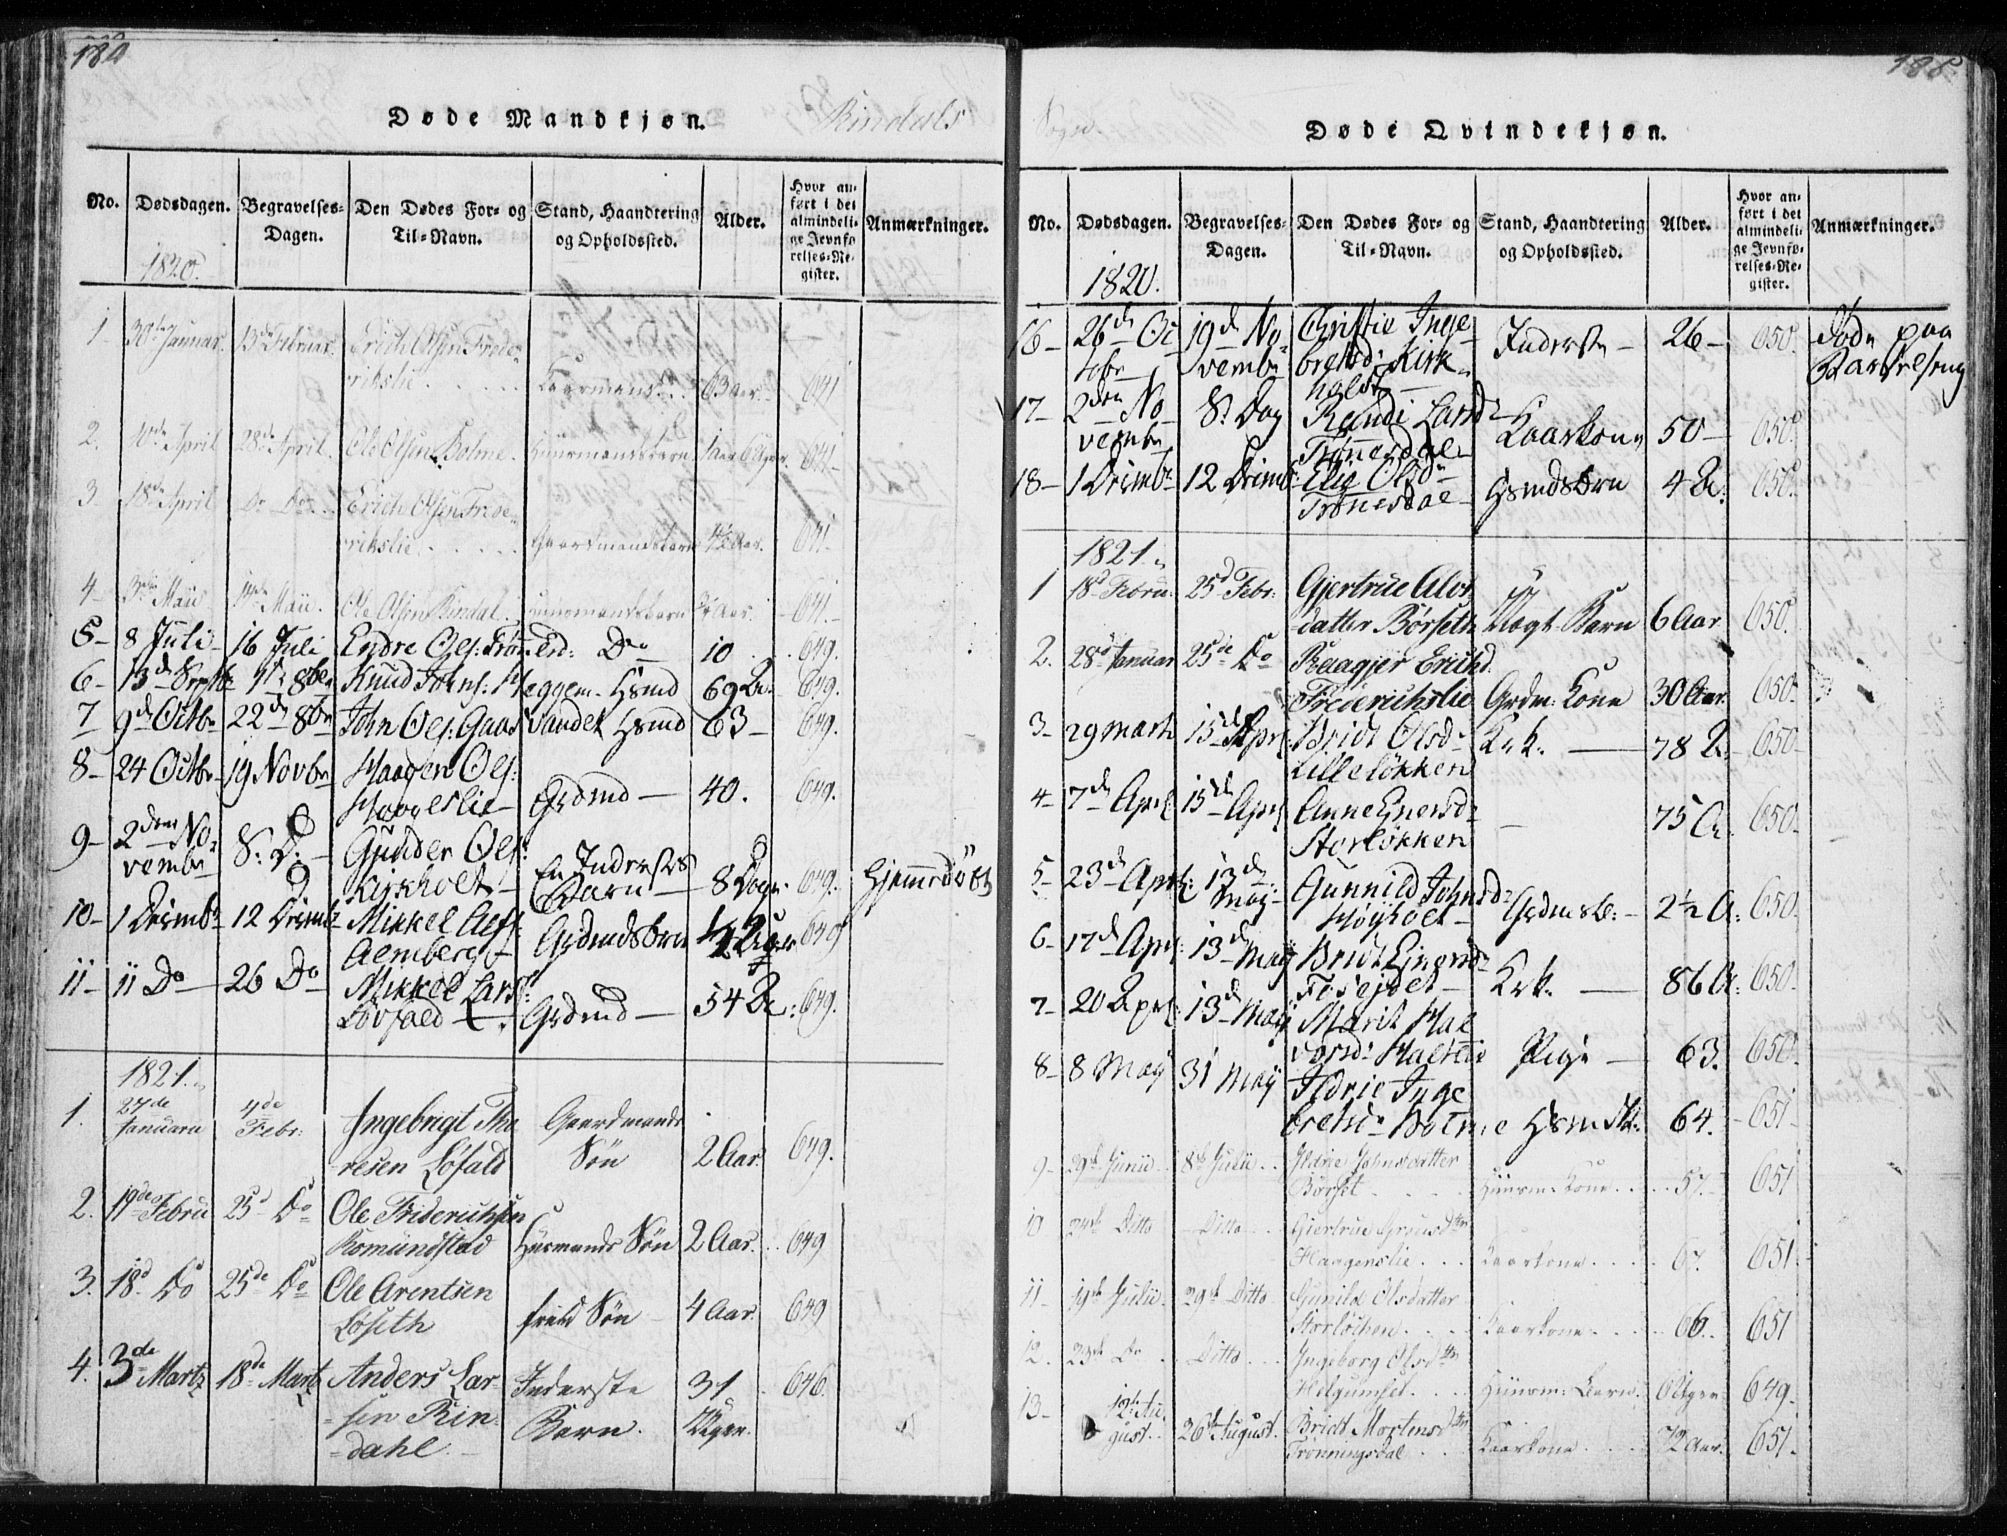 180
Døde Mandkjøn.
Rindals
No.
Dødsdagen.
Begravelses-
Dagen.
Den Dødes For- og
Til-Navn.
Stand, Haandtering
og Opholdssted.
Alder.
Hvor an-
ført i det
almindeli-
ge Jevnfø-
relses-Re-
gister.
Anmærkninger.
1820.
1 30te Januar. 13de Februar. Erich Olsen Frede-
rikslie . . . . 63 Aar. 641
2. 10de April 28de April. Ole Olsen Bolme. Huusmandsbarn 641
3 18de April Do Do Erich Olsen Frede-
rikslie . . . . Gaardmandsbarn 641.
4 Maii Maii. Ole Olsen Rindal. Huusmandsbarn 641.
5- 8 Juli 16 Juli Endre Ols: Do 10 649.
6- 13de Septbr 8br Knud Johns: Heggem. Hsmd 69 649.
7 9de Octbr 22de 8br John Ols: Gaasvandet Hsmd 63- 649.
8- 24 Octbr 19 Novbr Haagen Ols:
Haageslie- Grdmd- 40. 649.
9- 2den No-
vembr 8: D: Gunder Ols:
Kirkholt- En Inderstes
Barn 8 Dage 649. Hjemmedøbt
10- 1 Decembr 12 Decembr Mikkel
Grdmdsbrn 649
11- 11 Do 26 Do Mikkel Lars:
Løvfald Grdmd- 54 649.
1821.
1. 27de
Januarii 4de
Febr: Ingebrigt Tho-
resen Løfald Gaardmands
Søn 2 Aar. 649.
2. 19de Febru 25d Do Ole Friderichsen
Romundstad Huusmands Søn 2 Aar. 649
3. 18d Do 25de Do Ole Arentsen
Løseth Søn 4 Aar. 649
4. 3de Martz 18de Martz Anders Lar-
-sen Rin-
-dahl Inderste
Barn. 31
Uger. 646.
Sogn.
Døde Qvindekjøn.
No.
Dødsdagen.
Begravelses-
Dagen.
Den Dødes For- og
Til-Navn.
Stand, Haandtering
og Opholdssted.
Alder.
Hvor an-
ført i det
almindeli-
ge Jevnfø-
relses-Re-
gister.
Anmærkninger.
1820.
16- 26de Oc-
tobr 19de No-
vembr Christie Inge-
bretsd: Kirk-
holt- Inderste- 26- 650. Døde paa
Barselseng
17- 2den No-
vembr 8: Dag Randi Larsd:
Trønnesdal Kaarkone 50- 650.
18- 1 Decembr 12 Decembr Elie Olsd:
Trønesdal Hsmdsbrn 4 650.
1821.
1 18d Febru. 25d Febr: Gjertrue Alos-
datter Børseth Barn 6 Aar 650.
2. 28d Januar 25de Do Erichsd.
Frederichslie Grdm: Kone 30 Aar. 650.
3- 29 Marts 15de Apr: Bridt Olsd:
Lilleløkken K.k. 78 650-
4- 7de Apr: 15de Apr: Anne Enersd:
Storløkken - 75 A. 650-
5- 23de Apr: 13de
May- Gunnild Johnsd:
Høyholt- Grdmsb:- 2½ A: 650.
6- 17de Apr: 13de May Bridt Einersd:
Kk. 86 A: 650-
7- 20 Apr: 13de May Marit Hal-
vorsd: Pige- 63. 650-
8- 8 May 31 May Ildrie Inge-
bretsd: Bolme Hsmdk: 64. 651-
9- 29de Junii 8de Julii Ildrie Johnsdatter
Børset . . . Huusm: Kone . . 57. 651
10 24de Ditto Ditto Giertrue
Haagenslie . . . Kaarkone . . . 67. 651.
11 19de Julii 29de Ditto Gunild Olsdatter
Storløchen . . . Kaarkone . . . 66. 651
12. 23de Do Ditto Ingeborg Olsdtter
Helgumset. Huusm: Barn. Uger 649-
13- 12te Au-
gust. 26de August. Bridt Mortensdtter
Trønningsdal Kaarkone . . . 72 Aar. 651.